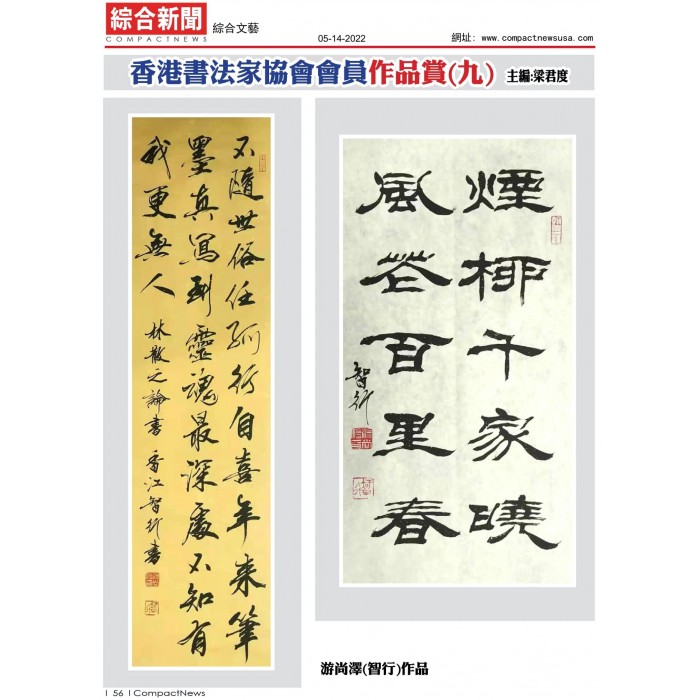 綜合新聞
COMPACTNEWS
綜合文藝
05-14-2022
網址: www.compactnewsusa.com
香港書法家協會會員作品賞(九)
主編:梁君度
不隨世俗任孤行自喜年来筆
墨真寫到靈魂最深處不知有
我更無人
林散之論書 香江智行書
煙柳千家曉
風花百里春
智行
游尚澤(智行)作品
56
CompactNews